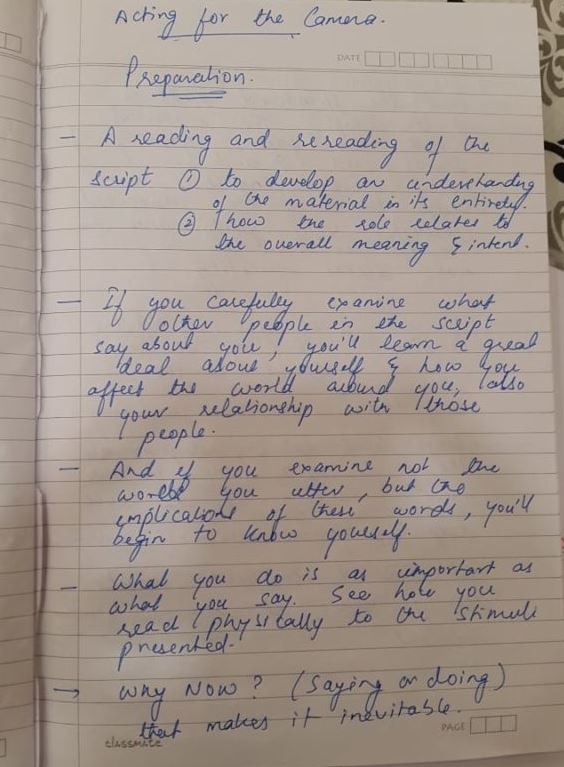 Acting for the Camera.
DATE
Preparation.
- A reading and rereading of the
script ① to develop an understanding
of the material in its entirety.
② how the role relates to
the overall meaning & intent.
- If you carefully examine what
other people in the script
say about you, you'll learn a great
deal about yourself & how you
affect the world around you, also
your relationship with those
people.
- And if you examine not the
words you utter, but the
implications of these words, you'll
begin to know yourself.
- What you do is as important as
what you say. See how you
react physically to the stimuli
presented.
→ Why Now? (Saying or doing)
that makes it inevitable.
classmate
PAGE